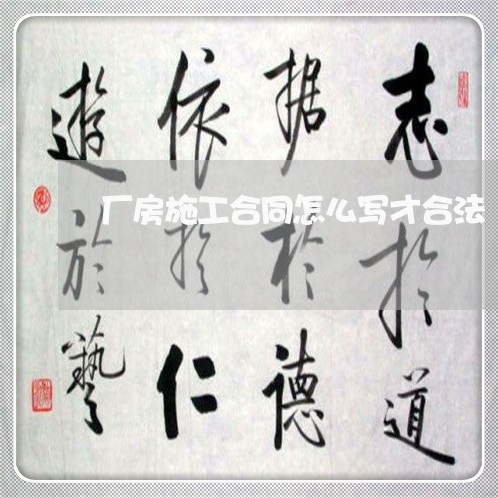 志於道
据於德
依於仁
遊於藝
厂房施工合同怎么写才合法